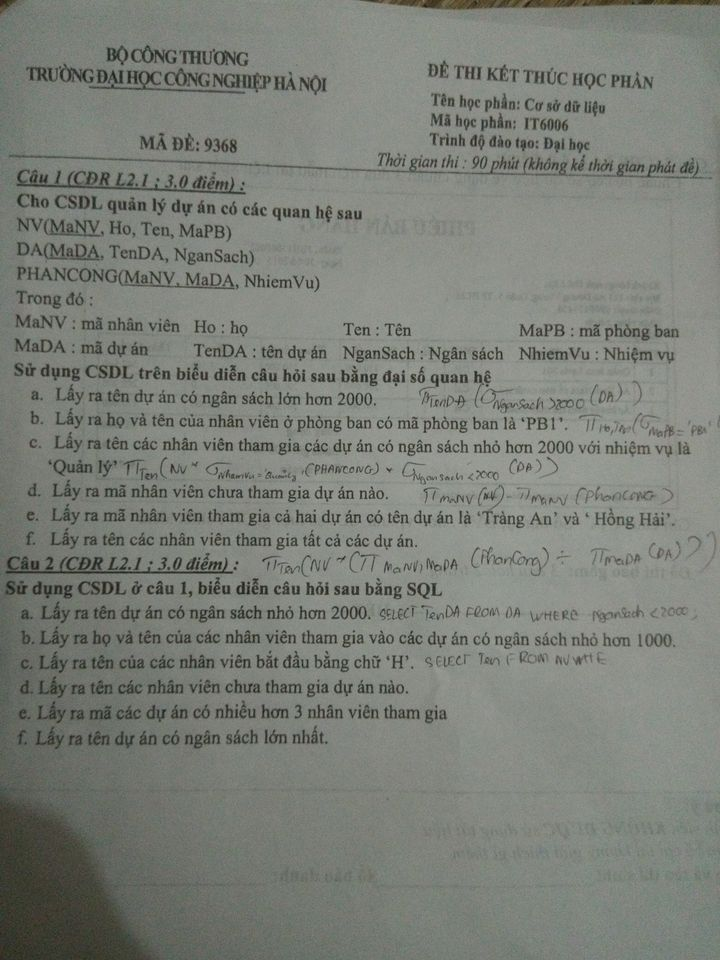 BỘ CÔNG THƯƠNG
TRƯỜNG ĐẠI HỌC CÔNG NGHIỆP HÀ NỘI
MÃ ĐỀ: 9368
ĐỀ THI KẾT THÚC HỌC PHẦN
Tên học phần: Cơ sở dữ liệu
Mã học phần: IT6006
Trình độ đào tạo: Đại học
Thời gian thi : 90 phút (không kể thời gian phát đề)
Câu 1 (CĐR L2.1 ; 3.0 điểm) :
Cho CSDL quản lý dự án có các quan hệ sau
NV(MaNV, Ho, Ten, MaPB)
DA(MaDA, TenDA, NganSach)
PHANCONG(MaNV, MaDA, NhiemVu)
Trong đó :
MaNV : mã nhân viên Ho : họ Ten : Tên MaPB : mã phòng ban
MaDA : mã dự án TenDA : tên dự án NganSach : Ngân sách NhiemVu : Nhiệm vụ
Sử dụng CSDL trên biểu diễn câu hỏi sau bằng đại số quan hệ
a. Lấy ra tên dự án có ngân sách lớn hơn 2000. π TenDA (σ NganSach >2000 (DA))
b. Lấy ra họ và tên của nhân viên ở phòng ban có mã phòng ban là 'PB1'. π Ho,Ten (σ MaPB='PB1' (
c. Lấy ra tên các nhân viên tham gia các dự án có ngân sách nhỏ hơn 2000 với nhiệm vụ là
'Quản lý' π Ten (NV * σ NhiemVu = 'Quản lý' (PHANCONG) * σ NganSach <2000 (DA))
d. Lấy ra mã nhân viên chưa tham gia dự án nào. π MaNV (NV) - π MaNV (PhanCONG)
e. Lấy ra mã nhân viên tham gia cả hai dự án có tên dự án là 'Tràng An' và ' Hồng Hải'.
f. Lấy ra tên các nhân viên tham gia tất cả các dự án.
Câu 2 (CĐR L2.1 ; 3.0 điểm) : π Ten (NV * (π MaNV, MaDA (PhanCong) ÷ π MaDA (DA)))
Sử dụng CSDL ở câu 1, biểu diễn câu hỏi sau bằng SQL
a. Lấy ra tên dự án có ngân sách nhỏ hơn 2000. SELECT TenDA FROM DA WHERE NganSach <2000;
b. Lấy ra họ và tên của các nhân viên tham gia vào các dự án có ngân sách nhỏ hơn 1000.
c. Lấy ra tên của các nhân viên bắt đầu bằng chữ 'H'. SELECT Ten FROM NV WHE
d. Lấy ra tên các nhân viên chưa tham gia dự án nào.
e. Lấy ra mã các dự án có nhiều hơn 3 nhân viên tham gia
f. Lấy ra tên dự án có ngân sách lớn nhất.